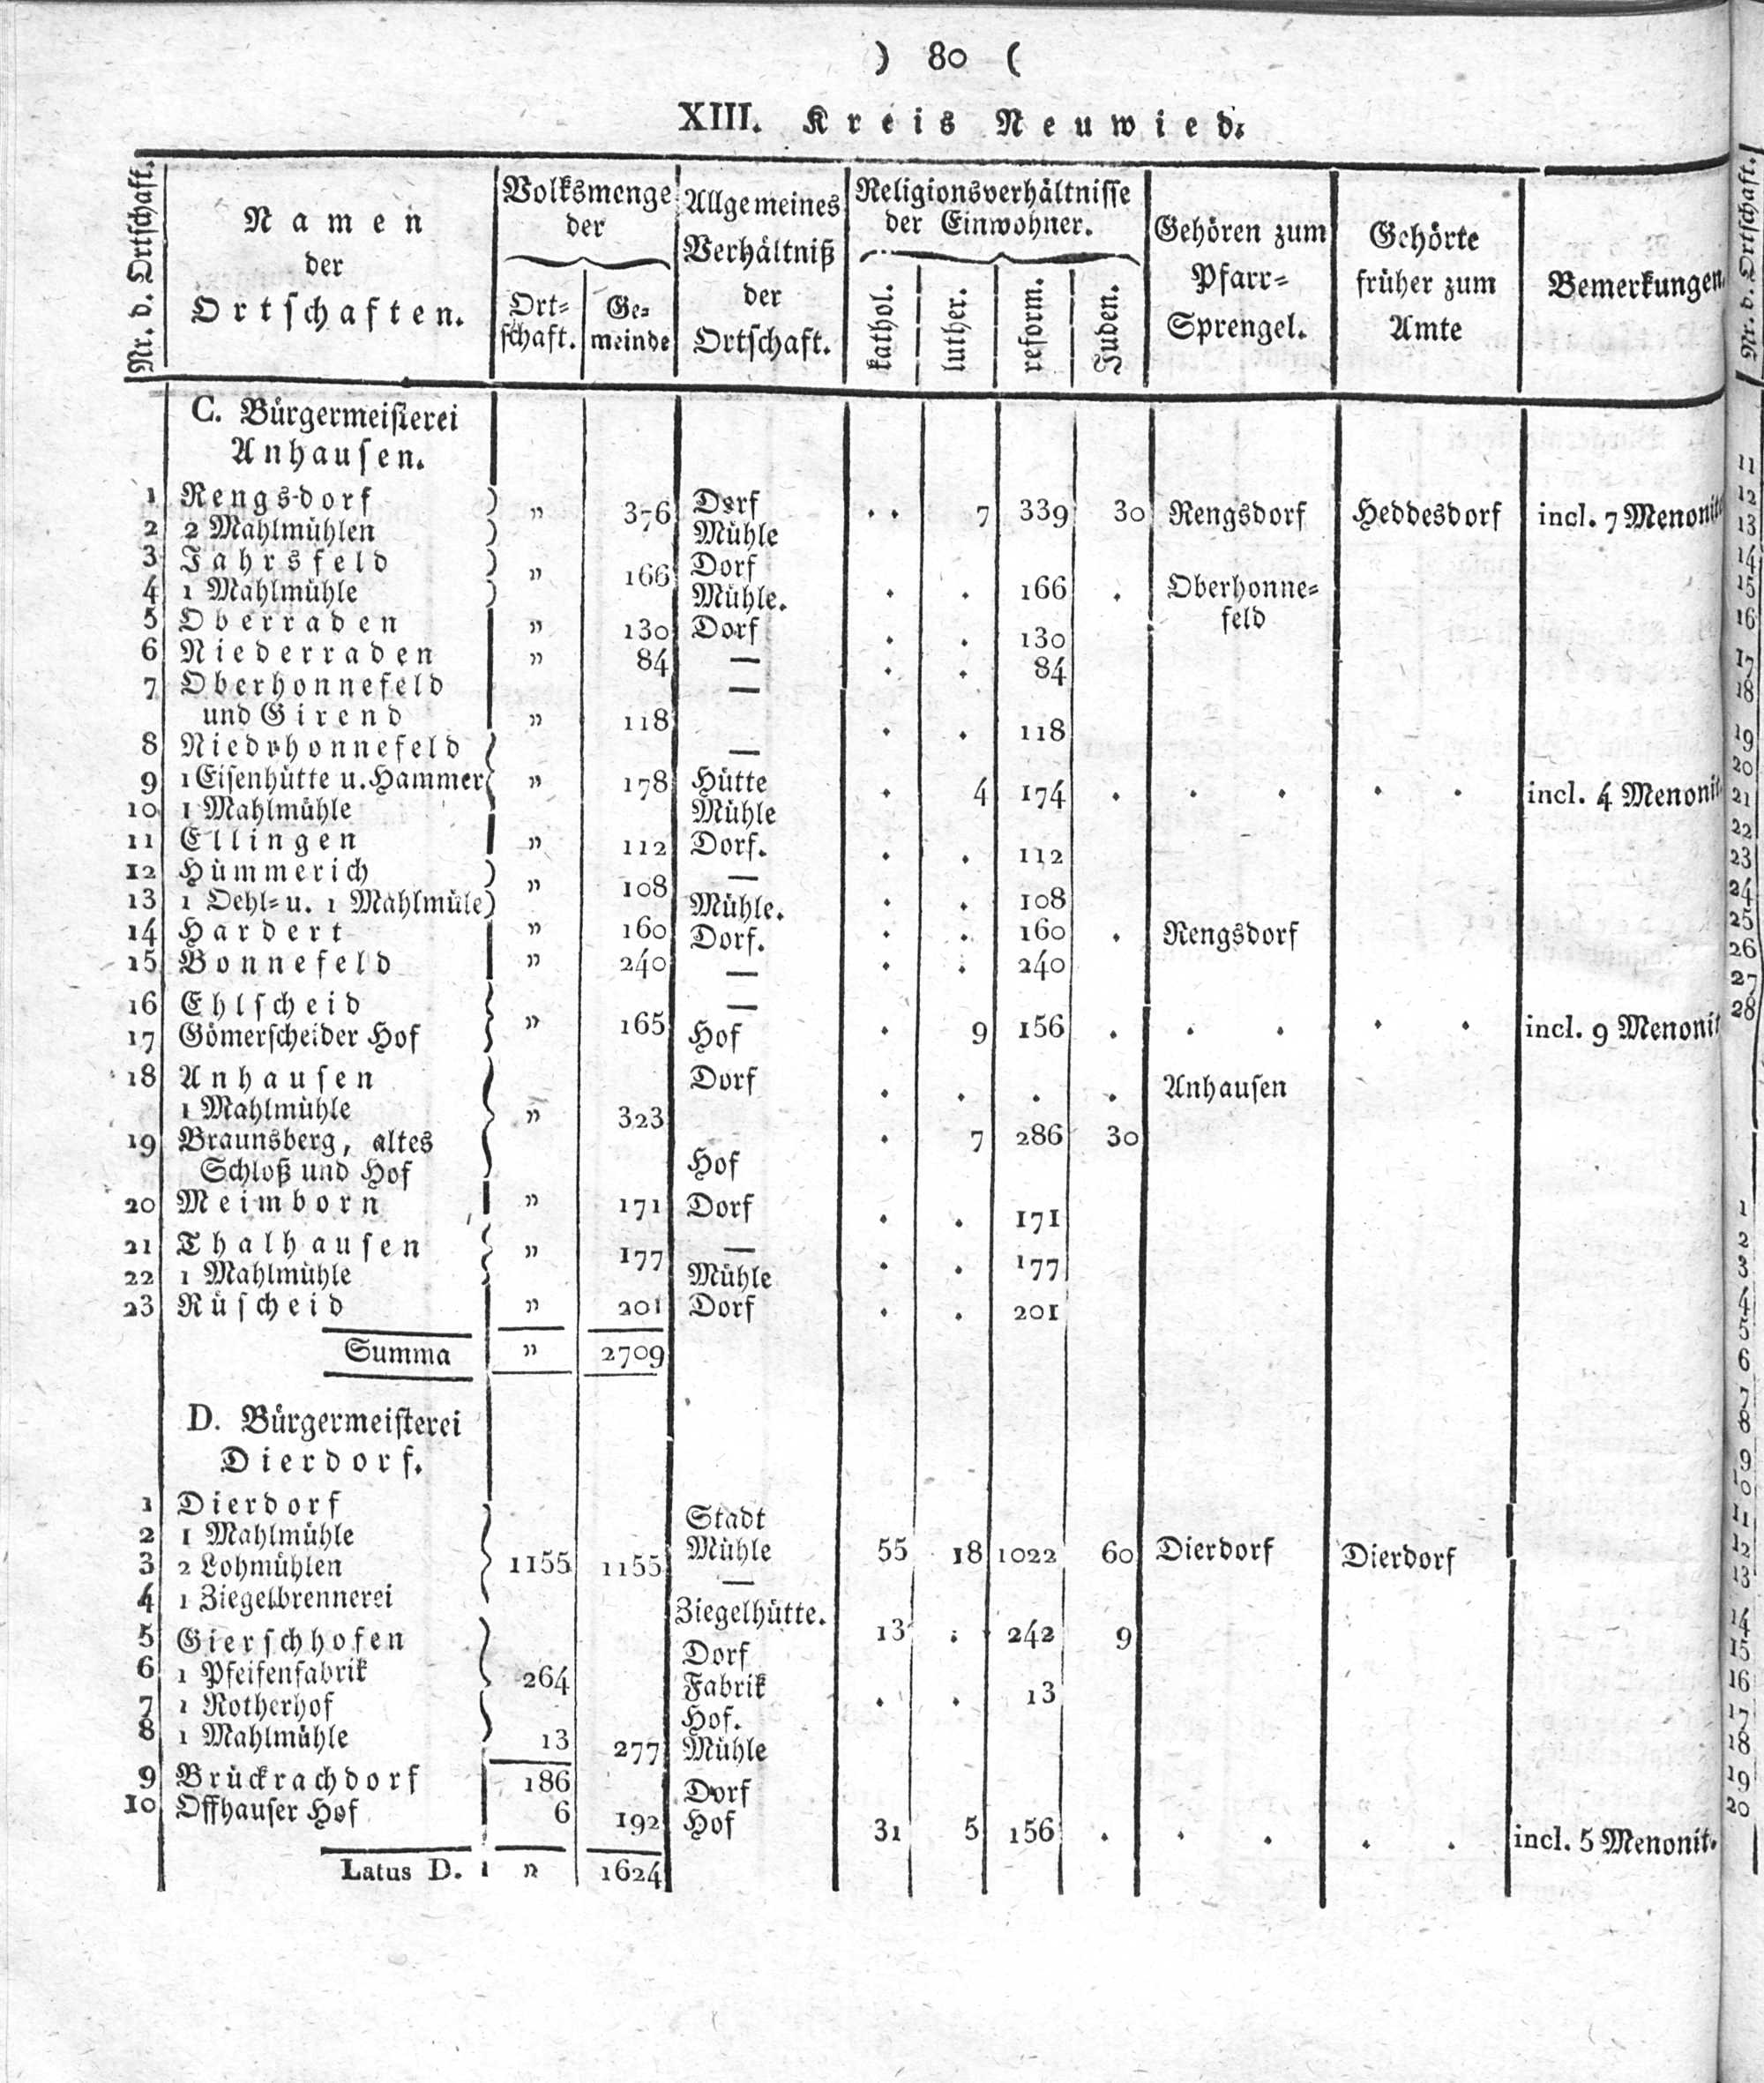 ) 80 (
XIII. Kreis Neuwied.
Nr. d. Ortschaft.
Namen
der
Ortschaften.
Volksmenge
der
Ort=
schaft.
Ge=
meinde
Allgemeines
Verhältniß
der
Ortschaft.
Religionsverhältnisse
der Einwohner.
kathol.
luther.
reform.
Juden.
Gehören zum
Pfarr=
Sprengel.
Gehörte
früher zum
Amte
Bemerkungen.
C. Bürgermeisterei
Anhausen.
1 Rengsdorf „ 376 Dorf . . 7 339 30 Rengsdorf Heddesdorf incl. 7 Menonit
2 2 Mahlmühlen Mühle
3 Jahrsfeld „ 166 Dorf . . 166 . Oberhonne=
4 1 Mahlmühle Mühle. feld
5 Oberraden „ 130 Dorf . . 130
6 Niederraden „ 84 — . . 84
7 Oberhonnefeld —
und Girend „ 118 . . 118
8 Niedrhonnefeld —
9 1 Eisenhütte u. Hammer „ 178 Hütte . 4 174 . . . . . incl. 4 Menonit
10 1 Mahlmühle Mühle
11 Ellingen „ 112 Dorf. . . 112
12 Hümmerich „ 108 — . . 108
13 1 Oehl= u. 1 Mahlmüle Mühle.
14 Hardert „ 160 Dorf. . . 160 . Rengsdorf
15 Bonnefeld „ 240 — . . 240
16 Ehlscheid —
17 Gömerscheider Hof „ 165 Hof . 9 156 . . . . . incl. 9 Menonit
18 Anhausen Dorf . . . . Anhausen
1 Mahlmühle „ 323
19 Braunsberg, altes . 7 286 30
Schloß und Hof Hof
20 Meimborn „ 171 Dorf . . 171
21 Thalhausen „ 177 — . . 177
22 1 Mahlmühle Mühle
23 Rüscheid „ 201 Dorf . . 201
Summa „ 2709
D. Bürgermeisterei
Dierdorf.
1 Dierdorf Stadt
2 1 Mahlmühle Mühle 55 18 1022 60 Dierdorf Dierdorf
3 2 Lohmühlen 1155 1155 —
4 1 Ziegelbrennerei Ziegelhütte.
5 Gierschhofen Dorf 13 . 242 9
6 1 Pfeifenfabrik 264 Fabrik
7 1 Rotherhof Hof. . . 13
8 1 Mahlmühle 13 277 Mühle
9 Brückrachdorf 186 Dorf
10 Offhauser Hof 6 192 Hof 31 5 156 . . . . . incl. 5 Menonit.
Latus D. „ 1624
Nr. d. Ortschaft.
11
12
13
14
15
16
17
18
19
20
21
22
23
24
25
26
27
28
1
2
3
4
5
6
7
8
9
10
11
12
13
14
15
16
17
18
19
20